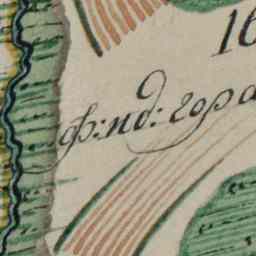 16
ф: ид: гора